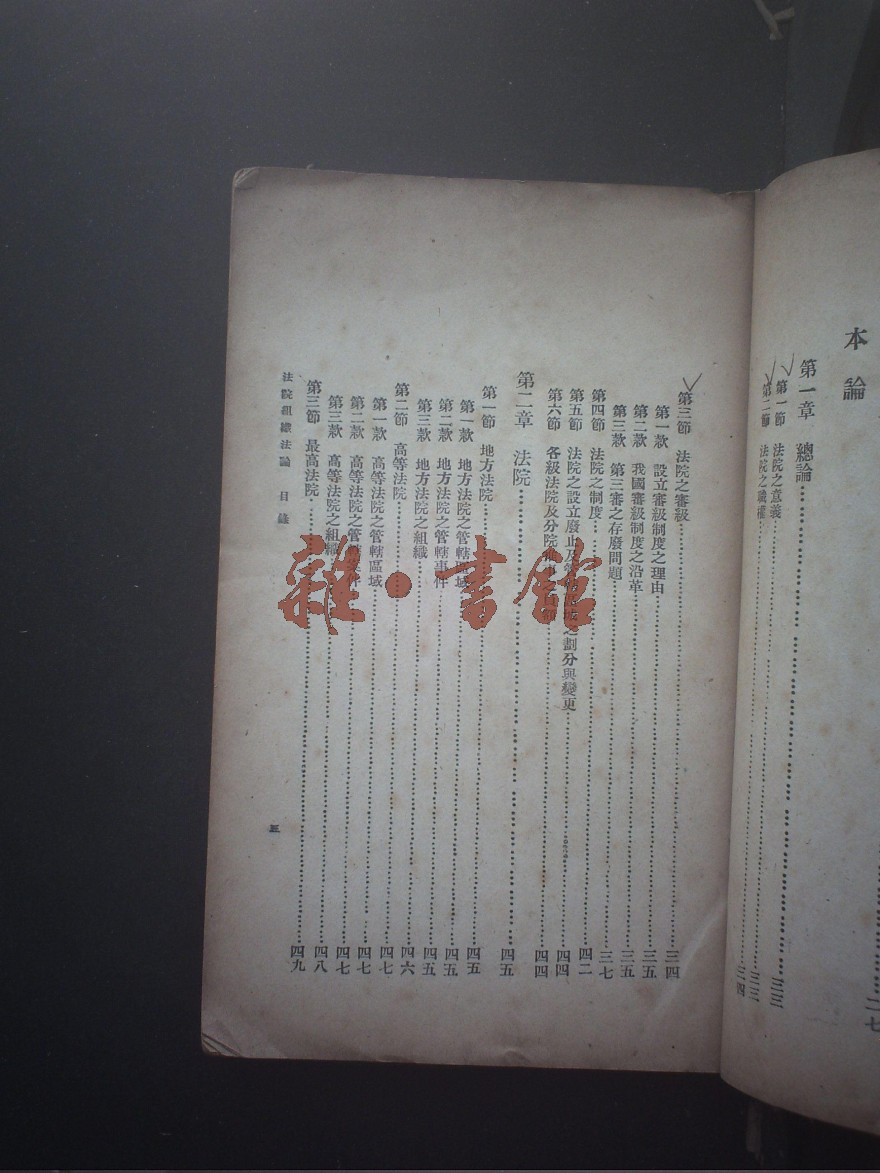 本論
第一章 總論
第一節 法院之意義 三三
第二節 法院之職權
第三節 法院之審級 三四
第一款 設立審級制度之理由 三五
第二款 我國審級制度之沿革 三五
第三款 第三審之存廢問題 三七
第四節 法院之制度 四二
第五節 法院之設立廢止及管轄區域之劃分與變更 四四
第六節 各級法院及分院 四四
第二章 法院 四五
第一節 地方法院 四五
第一款 地方法院之管轄區域 四五
第二款 地方法院之管轄事件 四五
第三款 地方法院之組織 四五
第二節 高等法院 四六
第一款 高等法院之管轄區域 四七
第二款 高等法院之管轄事件 四七
第三款 高等法院之組織 四七
第三節 最高法院 四九
法院組織法論 目錄
三
雜·書館